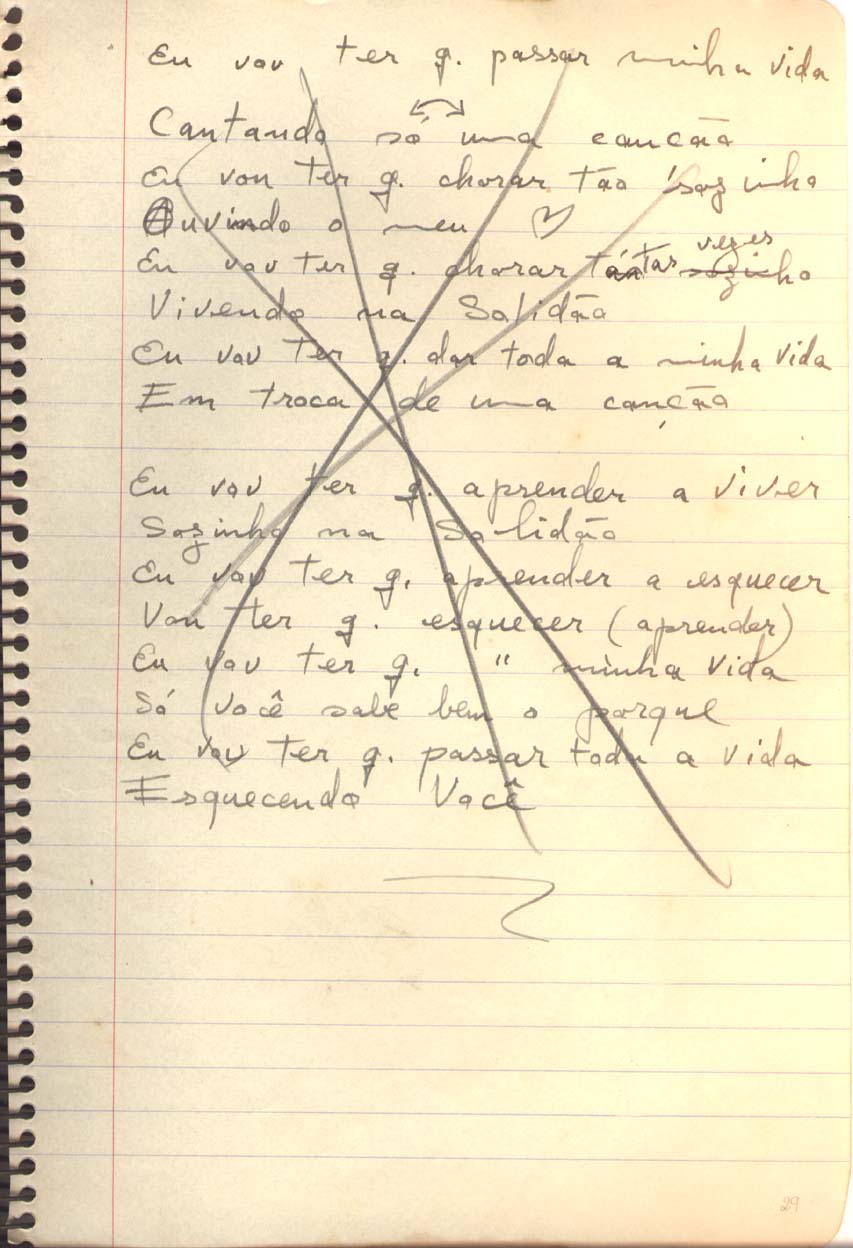 Eu vou ter q. passar minha vida
Cantando só uma canção
Eu vou ter q. chorar tão sozinho
Ouvindo o meu ♡
Eu vou ter q. chorar tantas vezes sozinho
Vivendo na Solidão
Eu vou ter q. dar toda a minha vida
Em troca de uma canção
Eu vou ter q. aprender a viver
Sozinho na Solidão
Eu vou ter q. aprender a esquecer
Vou ter q. esquecer (aprender)
Eu vou ter q. " minha vida
Só você sabe bem o porque
Eu vou ter q. passar toda a vida
Esquecendo Você
29